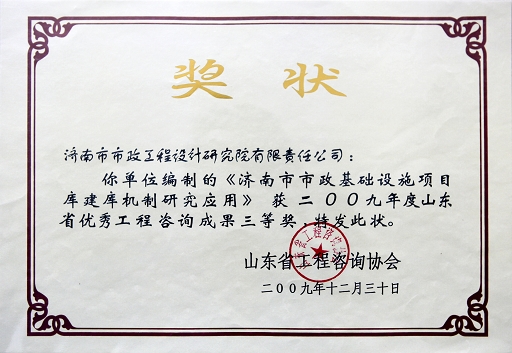 奖状
济南市市政工程设计研究院有限责任公司：
你单位编制的《济南市市政基础设施项目
库建库机制研究应用》 获 二〇〇九年度山东
省优秀工程咨询成果三等奖，特发此状。
山东省工程咨询协会
二〇〇九年十二月三十日